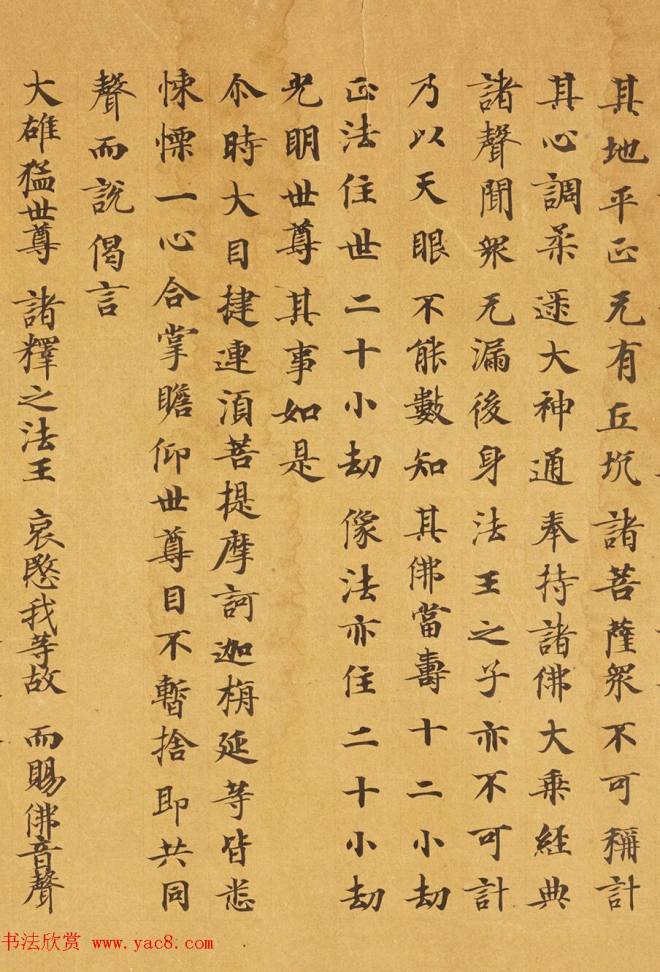 其地平正无有丘坑 諸菩薩衆不可稱計
其心調柔逮大神通 奉持諸佛大乗經典
諸聲聞衆无漏後身 法王之子亦不可計
乃以天眼不能數知 其佛當壽十二小劫
正法住世二十小劫 像法亦住二十小劫
光明世尊其事如是
尒時大目揵連湏菩提摩訶迦栴延等皆悉
悚慄一心合掌瞻仰世尊目不暫捨即共同
聲而說偈言
大雄猛世尊 諸釋之法王 哀愍我等故 而賜佛音聲
书法欣赏 www.yac8.com